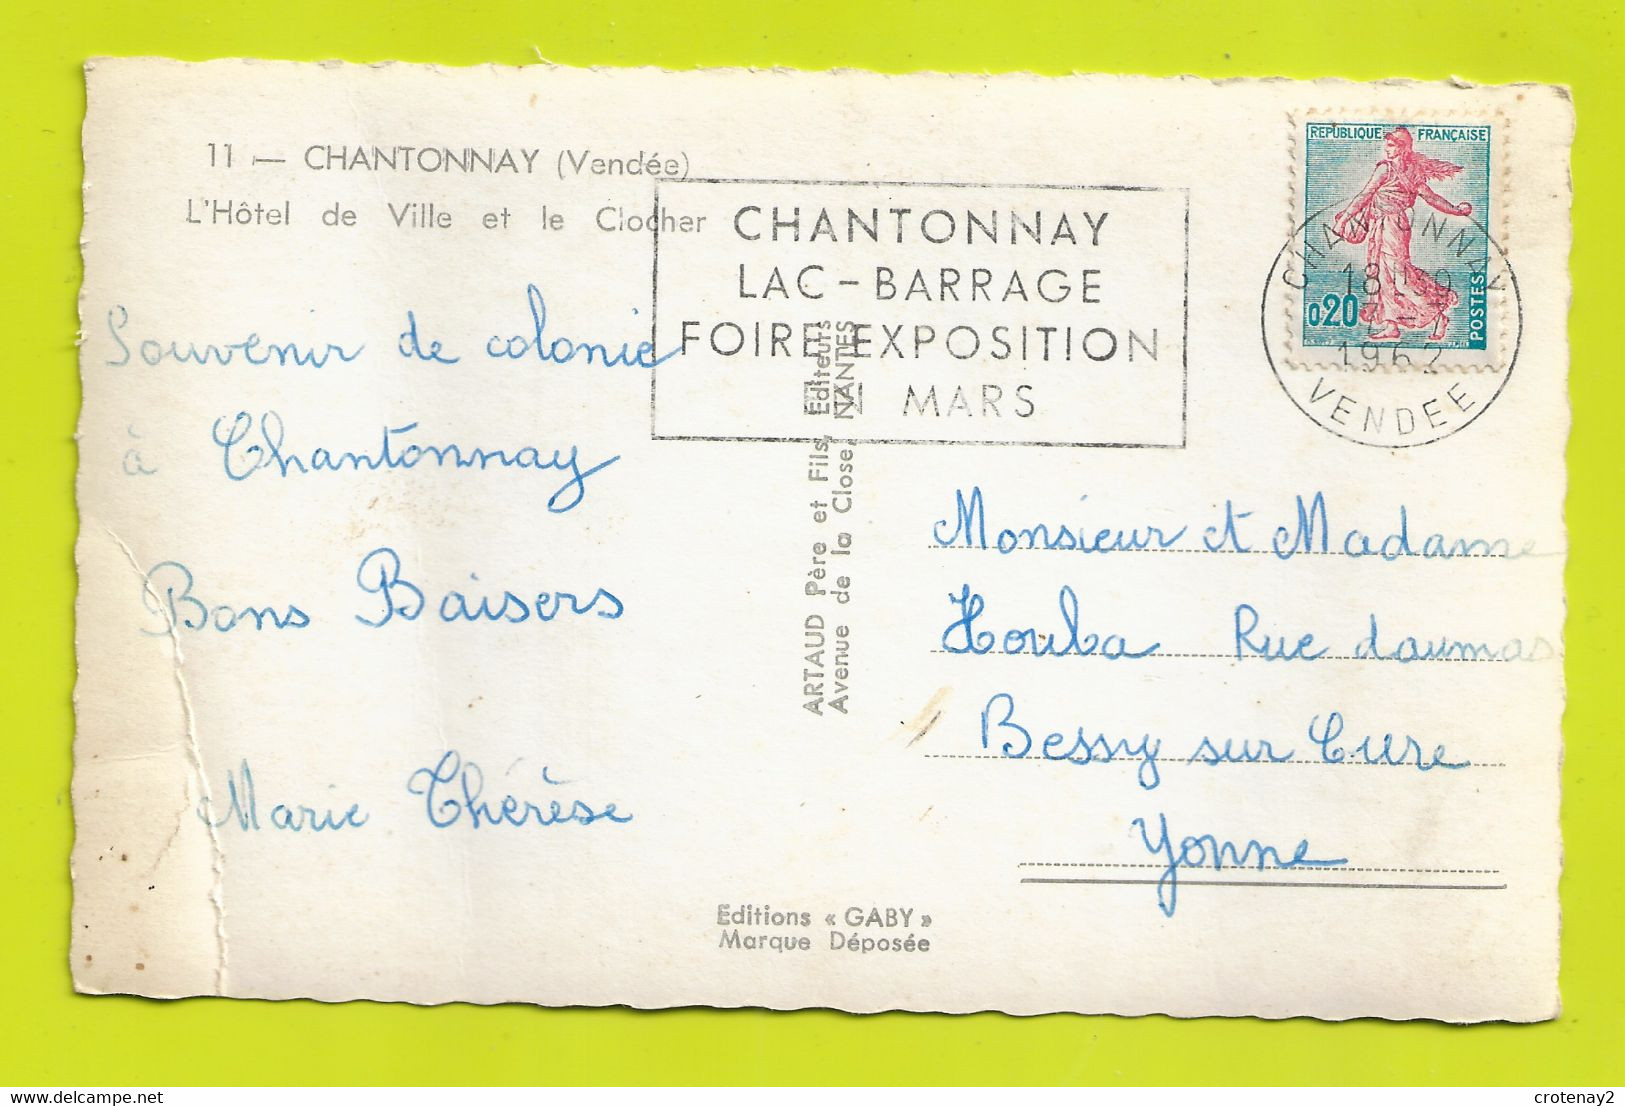 11 — CHANTONNAY (Vendée)
L'Hôtel de Ville et le Clocher
Souvenir de colonie
à Chantonnay
Bons Baisers
Marie Thérèse
CHANTONNAY
LAC - BARRAGE
FOIRE EXPOSITION
MARS
REPUBLIQUE FRANÇAISE
0,20
POSTES
CHANTONNAY
1962
VENDEE
ARTAUD Père et Fils, Editeurs
Avenue de la Close, NANTES
Monsieur et Madame
Houba Rue daumas
Bessy sur Cure
Yonne
Editions « GABY »
Marque Déposée
crotenay2